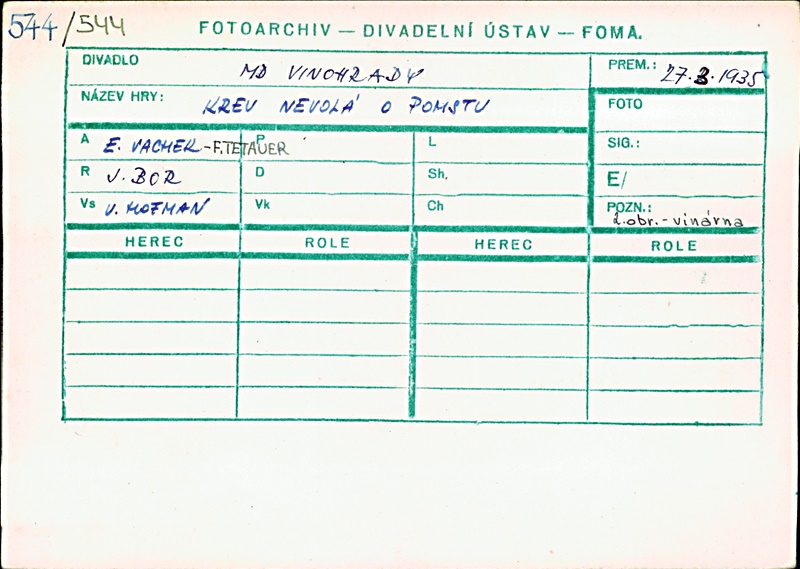 544/544 FOTOARCHIV — DIVADELNÍ ÚSTAV — FOMA.
DIVADLO MD VINOHRADY PREM.: 27.3.1935
NÁZEV HRY: KREV NEVOLÁ O POMSTU FOTO
A E. VACHEK - F.TETAUER P L SIG.:
R J. BOR D Sh. E/
Vs V. HOFMAN Vk Ch POZN.:
2.obr.-vinárna
HEREC ROLE HEREC ROLE